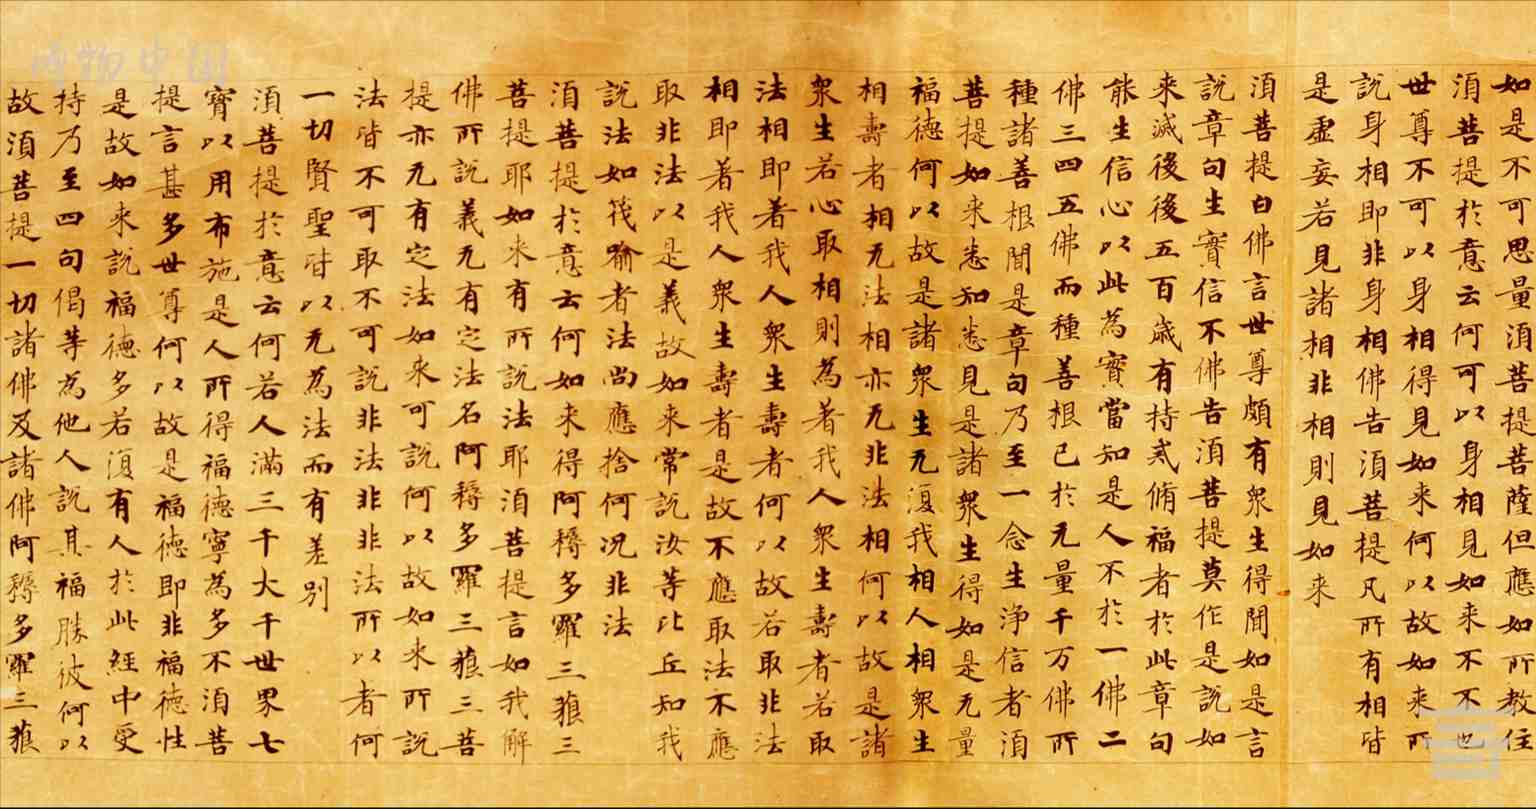 如是不可思量湏菩提菩薩但應如所教住
湏菩提於意云何可以身相見如来不不也
世尊不可以身相得見如来何以故如来所
說身相即非身相佛告湏菩提凡所有相皆
是虛妄若見諸相非相則見如来
湏菩提白佛言世尊頗有衆生得聞如是言
說章句生實信不佛告湏菩提莫作是說如
来滅後後五百歲有持戒脩福者於此章句
能生信心以此為實當知是人不於一佛二
佛三四五佛而種善根已於无量千万佛所
種諸善根聞是章句乃至一念生淨信者湏
菩提如来悉知悉見是諸衆生得如是无量
福德何以故是諸衆生无復我相人相衆生
相壽者相无法相亦无非法相何以故是諸
衆生若心取相則為著我人衆生壽者若取
法相即著我人衆生壽者何以故若取非法
相即著我人衆生壽者是故不應取法不應
取非法以是義故如来常說汝等比丘知我
說法如筏喻者法尚應捨何况非法
湏菩提於意云何如来得阿耨多羅三藐三
菩提耶如来有所說法耶湏菩提言如我解
佛所說義无有定法名阿耨多羅三藐三菩
提亦无有定法如来可說何以故如来所說
法皆不可取不可說非法非非法所以者何
一切賢聖皆以无為法而有差別
湏菩提於意云何若人滿三千大千世界七
寶以用布施是人所得福德寧為多不湏菩
提言甚多世尊何以故是福德即非福德性
是故如来說福德多若復有人於此經中受
持乃至四句偈等為他人說其福勝彼何以
故湏菩提一切諸佛及諸佛阿耨多羅三藐
博物中国